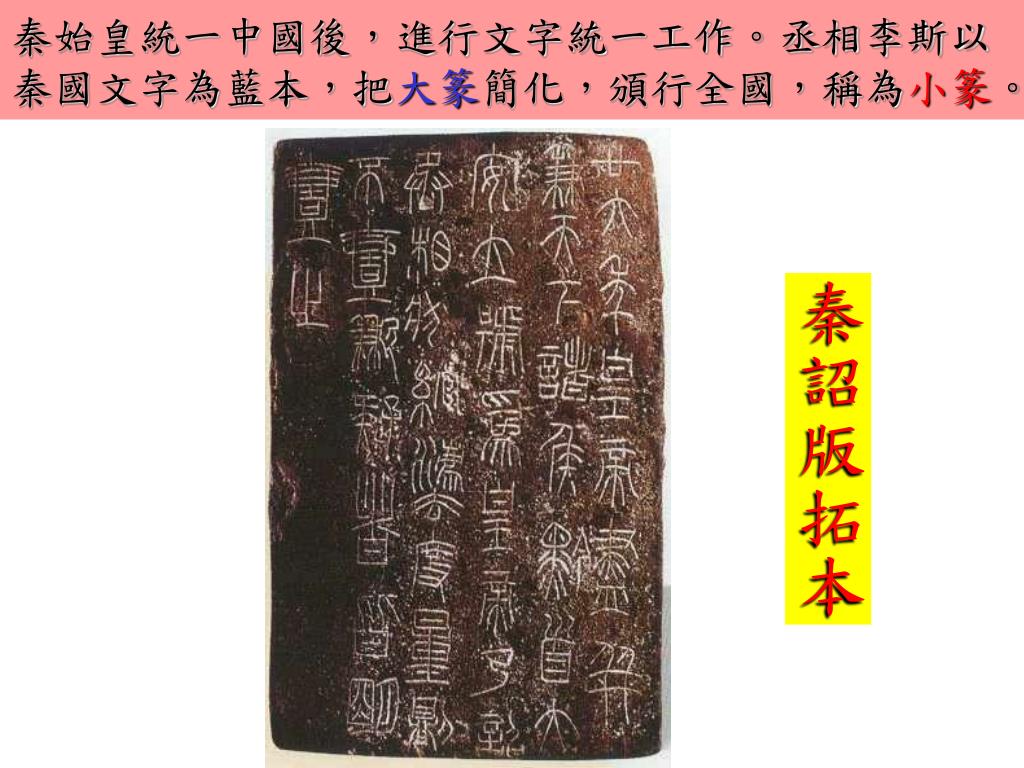 秦始皇統一中國後，進行文字統一工作。丞相李斯以
秦國文字為藍本，把大篆簡化，頒行全國，稱為小篆。
廿六年皇帝盡并
兼天下諸侯黔首大
安立號為皇帝乃詔
丞相狀綰灋度量則
不壹歉疑者皆明
壹之
秦詔版拓本